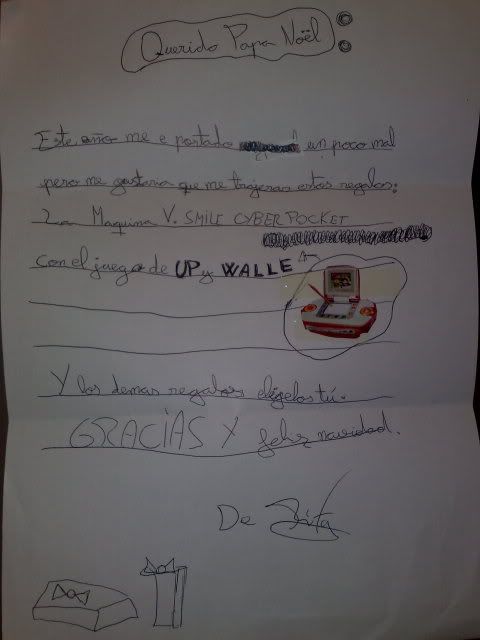 Querido Papa Noël
Este año me e portado un poco mal
pero me gustaria que me trojeras estos regalos:
La Maquina V. SMILE CYBER POCKET
con el juego de UP y WALLE
Y los demas regalos elígelos tú.
GRACIAS Y feliz navidad.
De